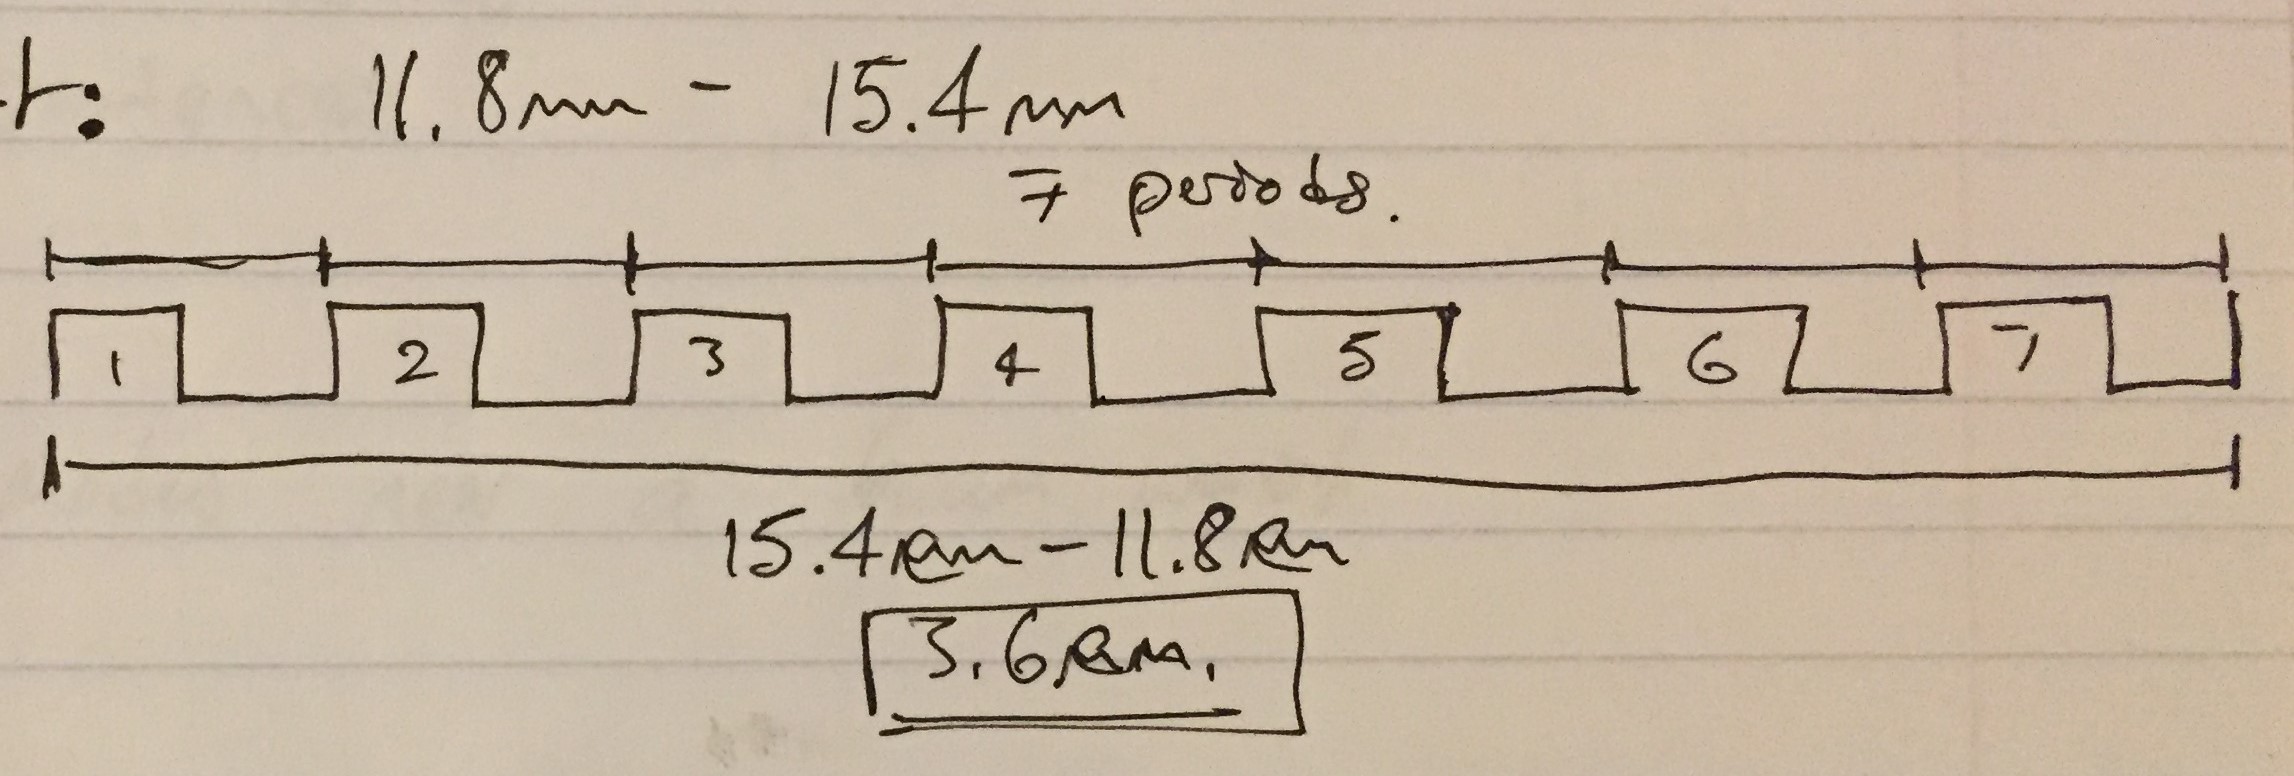 t: 11.8mm - 15.4mm
7 periods.
1 2 3 4 5 6 7
15.4mm - 11.8mm
3.6mm.